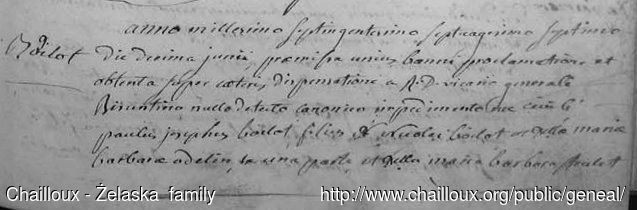 anno millesimo septingentesimo septuagesimo septimo
die decima junii, præmissa unius banni proclamatione et
obtenta super cæteris dispensatione a R. D. vicario generale
Bisuntino nullo detecto canonico impedimento
paulus josephus boilot filius Nicolai boilot et mariæ
barbaræ odelin, ex una parte et maria barbara
Chailloux - Żelaska family http://www.chailloux.org/public/geneal/